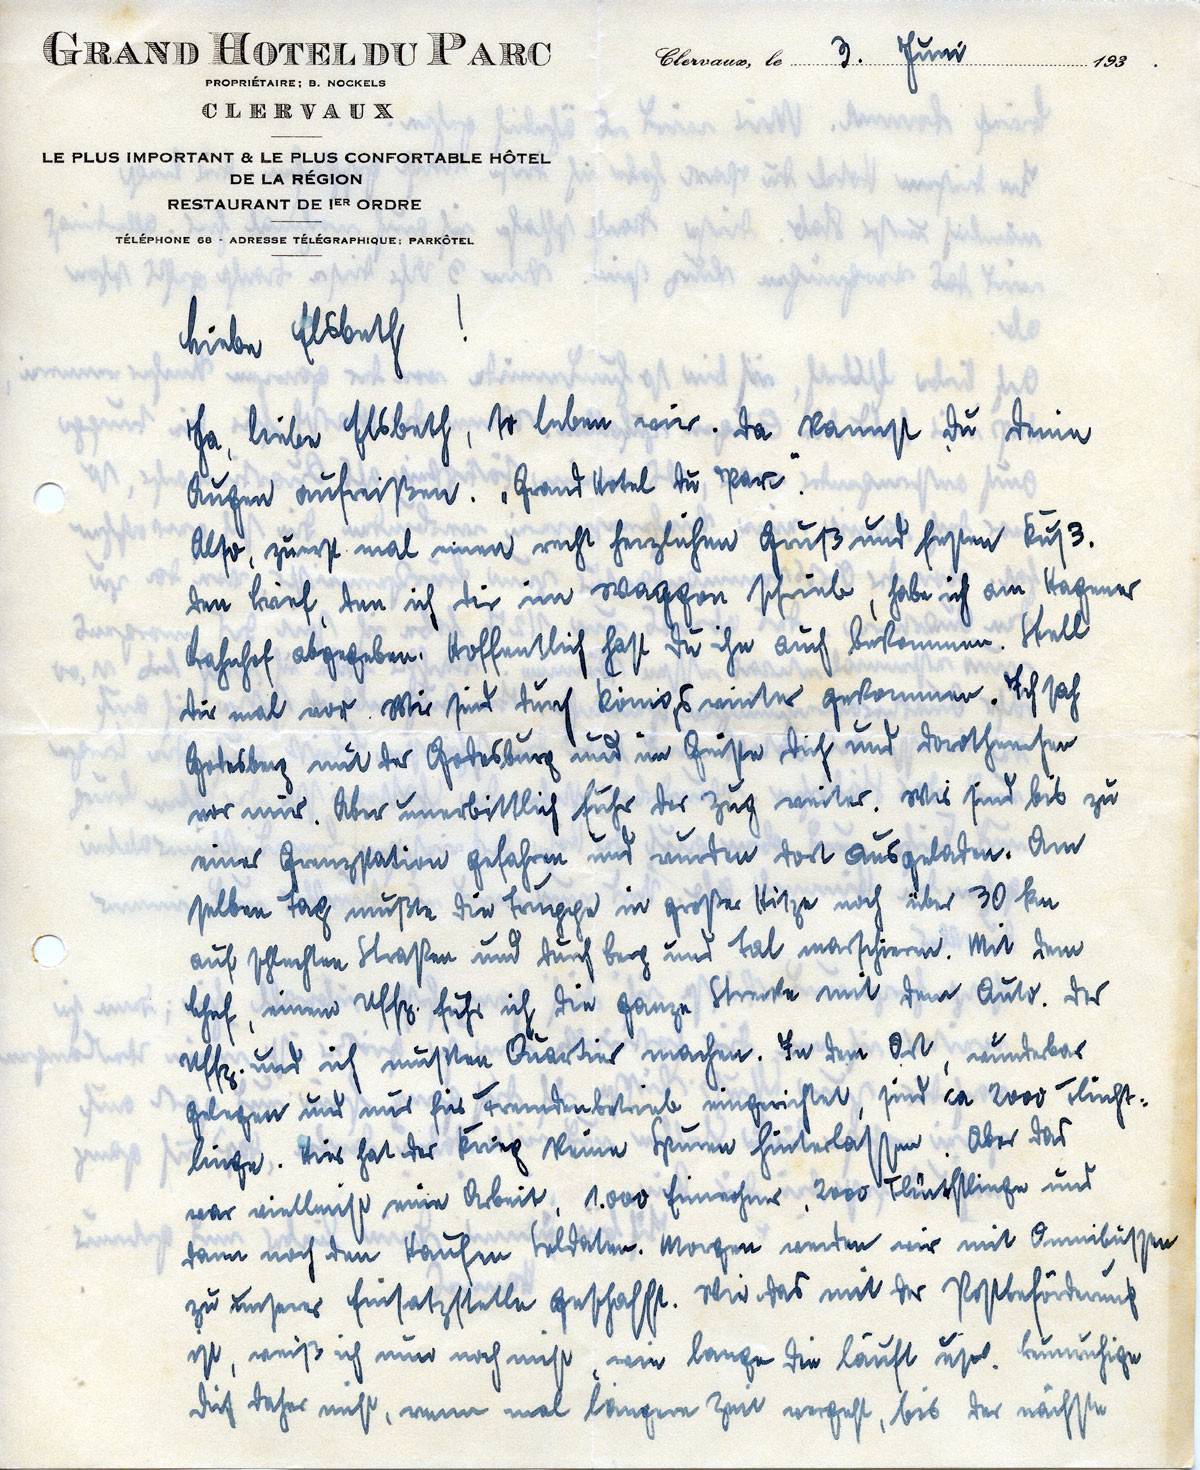 GRAND HOTEL DU PARC
PROPRIÉTAIRE; B. NOCKELS
CLERVAUX
LE PLUS IMPORTANT & LE PLUS CONFORTABLE HÔTEL
DE LA RÉGION
RESTAURANT DE IER ORDRE
TÉLÉPHONE 68 - ADRESSE TÉLÉGRAPHIQUE: PARKÔTEL
Clervaux, le 3. Juni 193 .
Liebe Elsbeth !
Ja, liebe Elsbeth, so leben wir. Da kannst Du Deine
Augen aufreißen. „Grand Hotel du Parc".
Also, zuerst mal einen recht herzlichen Gruß und festen Kuß.
Den Brief, den ich Dir im Waggon schrieb, habe ich am Hagener
Bahnhof abgegeben. Hoffentlich hast Du ihn auch bekommen. Stell
Dir mal vor. Wir sind durch Königswinter gekommen. Ich sah
Godesberg mit der Godesburg und im Geiste Dich und Dorotheechen
vor mir. Aber unerbittlich fuhr der Zug weiter. Wir sind bis zu
einer Grenzstation gefahren und wurden dort ausgeladen. Am
selben Tag mußte die Truppe in großer Hitze noch über 30 km
auf schlechten Straßen und durch Berg und Tal marschieren. Mit dem
Chef, einem Uffz. fuhr ich die ganze Strecke mit dem Auto. Der
Uffz. und ich mußten Quartier machen. In dem Ort, wunderbar
gelegen und nur für Fremdenbetrieb eingerichtet, sind ca 2000 Flücht-
linge. Hier hat der Krieg keine Spuren hinterlassen. Aber das
war vielleicht eine Arbeit, 1.000 Einwohner, 2000 Flüchtlinge und
dann noch den Haufen Soldaten. Morgen werden wir mit Omnibussen
zu unserer Einsatzstelle geschafft. Wie das mit der Postbeförderung
ist, weiß ich nun noch nicht, wie lange die läuft usw. Beunruhige
Dich daher nicht, wenn mal längere Zeit vergeht, bis der nächste